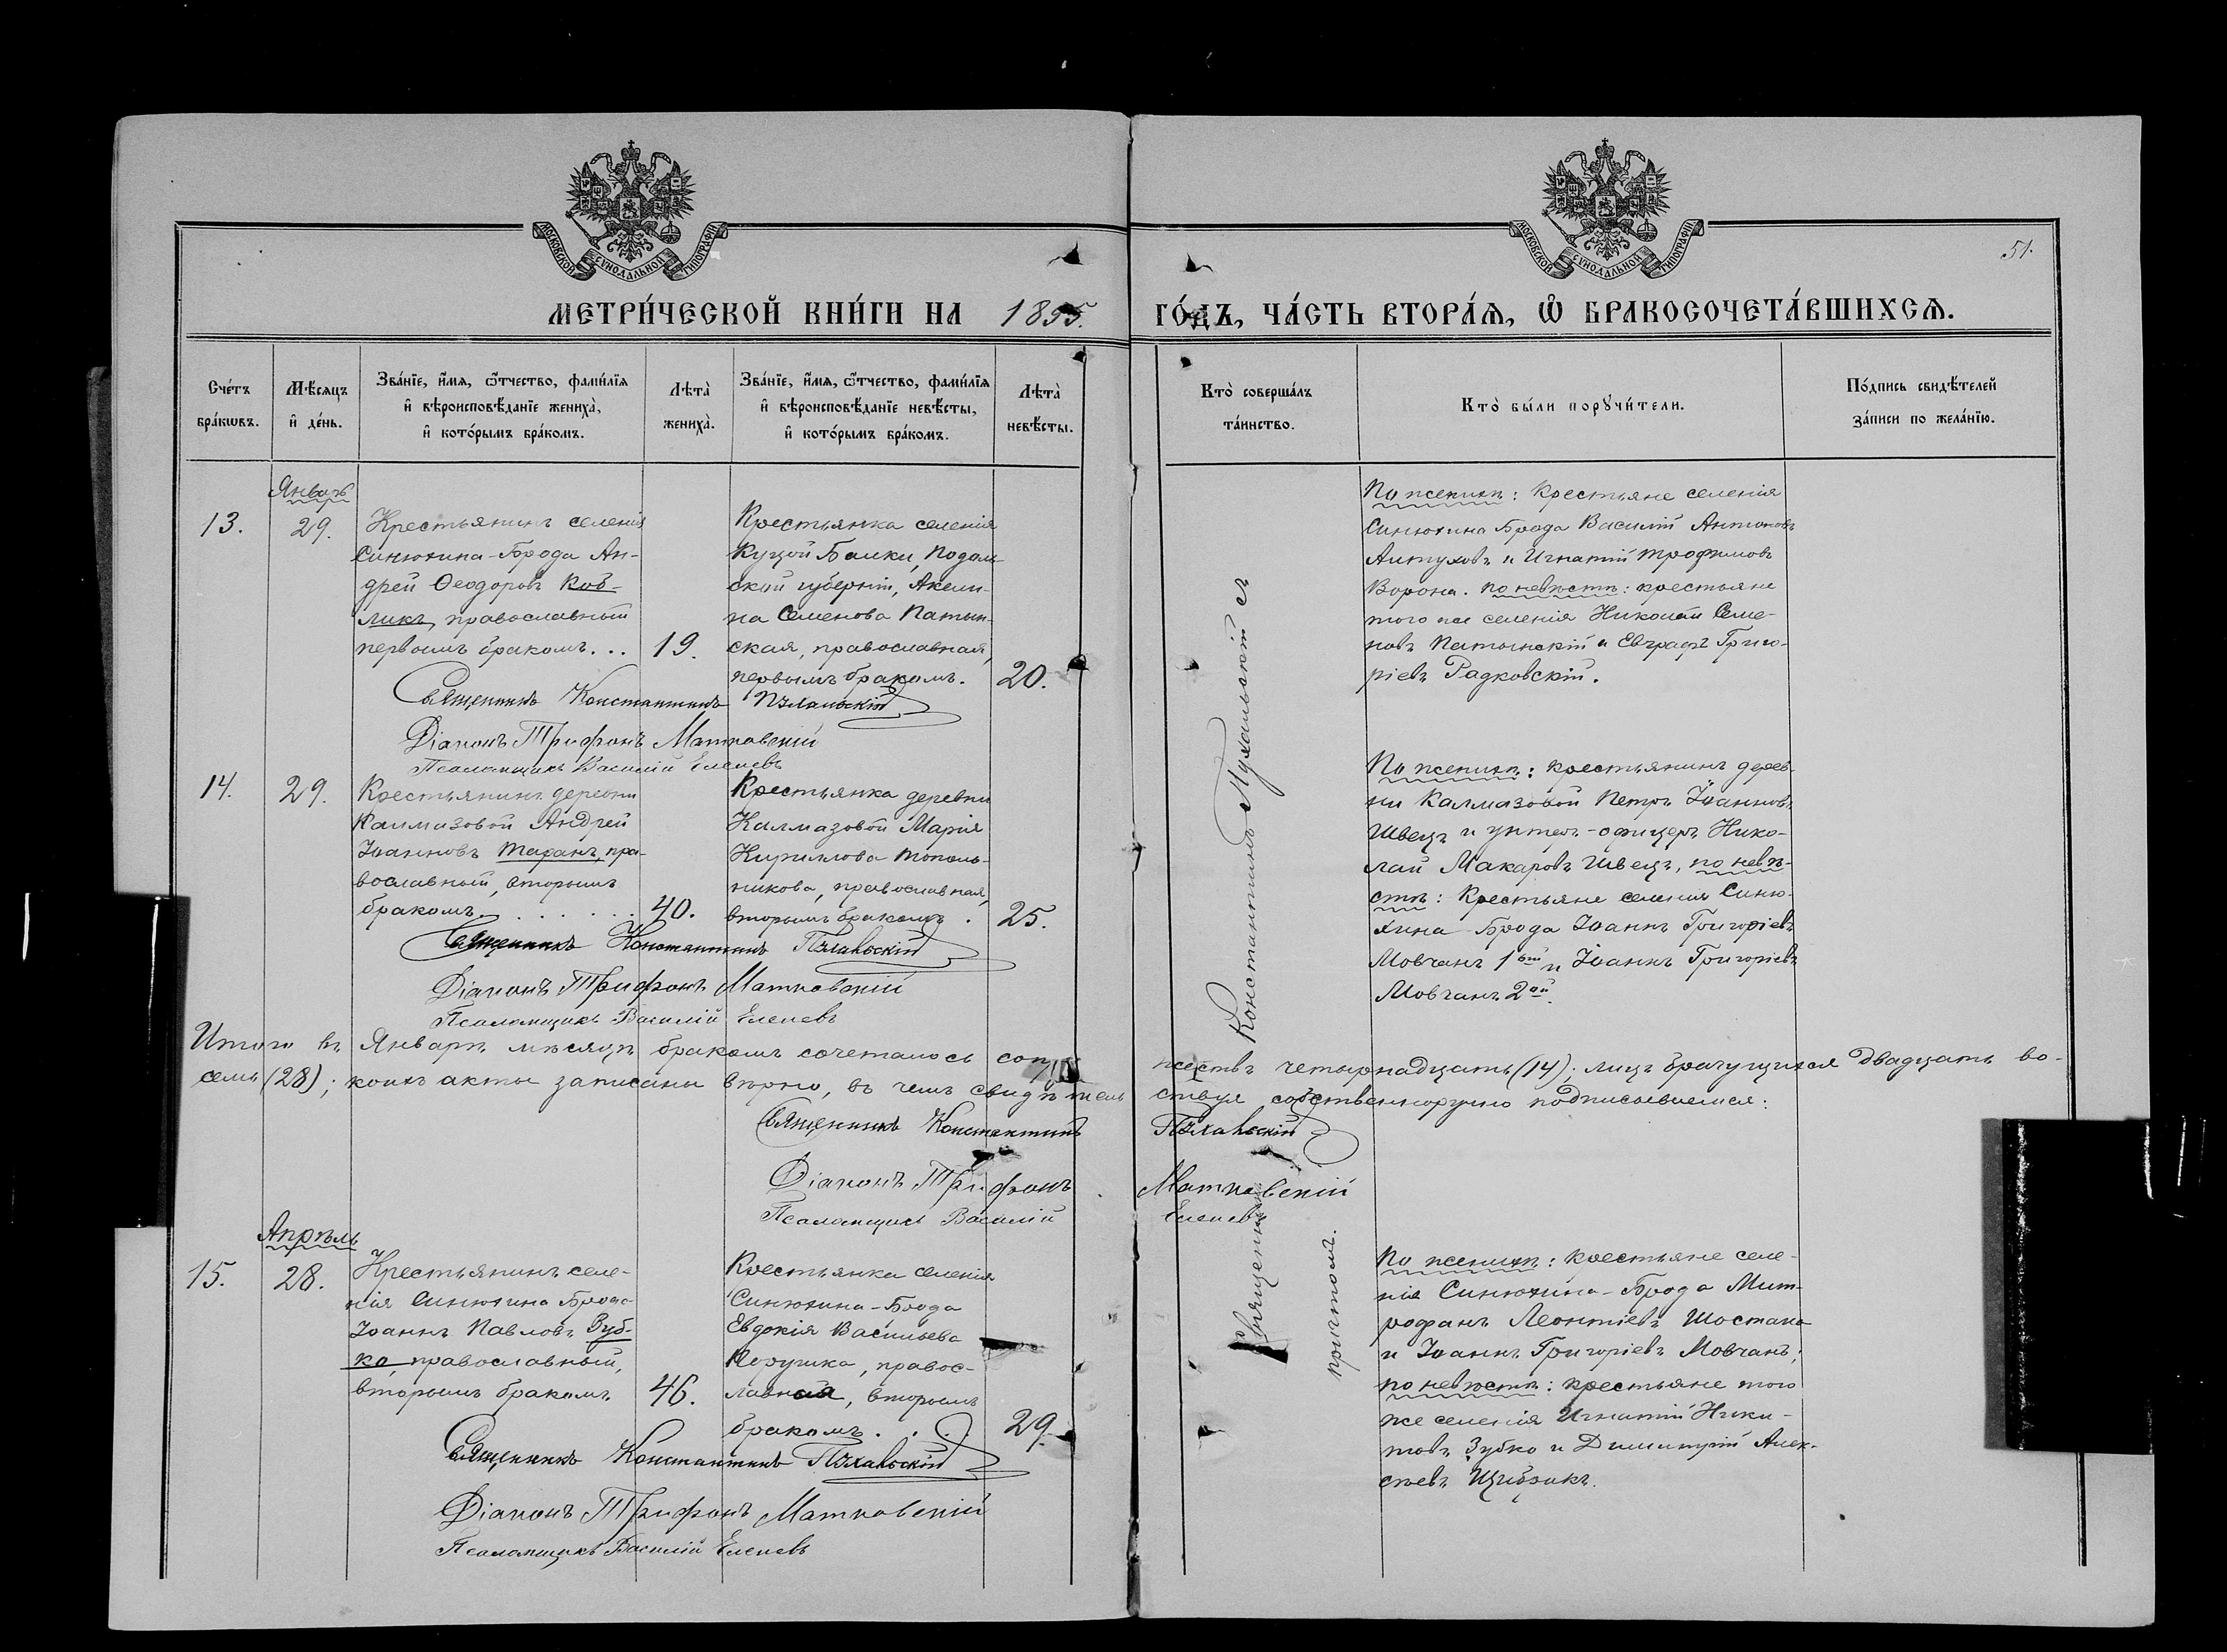 МОСКОВСКОЙ СУНОДАЛЬНОЙ ТИПОГРАФІИ
МОСКОВСКОЙ СУНОДАЛЬНОЙ ТИПОГРАФІИ
51.
МЕТРИ́ЧЕСКОЙ КНИ́ГИ НА 1895. ГО́ДЪ, ЧА́СТЬ ВТОРА́Ѧ, Ѡ҆ БРАКОСОЧЕТА́ВШИХСѦ.
Сче́тъ
бра́кѡвъ.
Мѣ́сяцъ
и҆ де́нь.
Зва́нїе, и҆́мѧ, ѻ҆́тчество, фами́лїѧ
и҆ вѣроисповѣ́данїе жениха̀,
и҆ кото́рымъ бра́комъ.
Лѣта̀
жениха̀.
Зва́нїе, и҆́мѧ, ѻ҆́тчество, фами́лїѧ
и҆ вѣроисповѣ́данїе невѣ́сты,
и҆ кото́рымъ бра́комъ.
Лѣта̀
невѣ́сты.
Кто̀ соверша́лъ
та́инство.
Кто̀ бы́ли порꙋчи́тели.
По́дпись свидѣ́телей
за́писи по жела́нїю.
Январь
13.
29.
Крестьянинъ селенія
Синюхина-Брода Ан-
дрей Ѳеодоровъ Коб-
ликъ, православный
первымъ бракомъ...
19.
Крестьянка селенія
Куцой Балки, Подоль-
ской губерніи, Акели-
на Семенова Патын-
ская, православная,
первымъ бракомъ.
20.
По женихѣ: крестьяне селенія
Синюхина Брода Василій Антоновъ
Алтуховъ и Игнатій Трофимовъ
Ворона. по невѣстѣ: крестьяне
того же селенія Николай Семе-
новъ Патынскій и Евграфъ Григо-
ріевъ Радковскій.
Священникъ Константинъ Пухальскій
Діаконъ Трифонъ Матковскій
Псаломщикъ Василій Еленевъ
14.
29.
Крестьянинъ деревни
Калмазовой Андрей
Іоанновъ Таранъ, пра-
вославный, вторымъ
бракомъ. . . . . . .
40.
Крестьянка деревни
Калмазовой Марія
Кириллова Тополь-
никова, православная,
вторымъ бракомъ .
25.
По женихѣ: крестьянинъ дерев-
ни Калмазовой Петръ Іоанновъ
Швецъ и унтеръ-офицеръ Нико-
лай Макаровъ Швецъ, по невѣ-
стѣ: Крестьяне селенія Синю-
хина-Брода Іоаннъ Григоріевъ
Мовчанъ 1ый и Іоаннъ Григоріевъ
Мовчанъ 2ой.
Священникъ Константинъ Пухальскій
Діаконъ Трифонъ Матковскій
Псаломщикъ Василій Еленевъ
Итого въ Январѣ мѣсяцѣ бракомъ сочеталось супружествъ четырнадцать (14); лицъ брачущихся двадцать во-
семь (28); коихъ акты записаны вѣрно, въ чемъ свидѣтельствуя собственноручно подписываемся:
Священникъ Константинъ Пухальскій
Діаконъ Трифонъ Матковскій
Псаломщикъ Василій Еленевъ
Священникъ Константинъ Пухальскій съ
причтомъ.
Апрѣль
15.
28.
Крестьянинъ селе-
нія Синюхина Брода
Іоаннъ Павловъ Зуб-
ко, православный,
вторымъ бракомъ.
46.
Крестьянка селенія
Синюхина-Брода
Евдокія Васильева
православ-
ная, вторымъ
бракомъ. . .
29.
По женихѣ: крестьяне селе-
нія Синюхина-Брода Мит-
рофанъ Леонтіевъ Шостако
и Іоаннъ Григоріевъ Мовчанъ;
по невѣстѣ: крестьяне того
же селенія Игнатій Ники-
товъ Зубко и Димитрій Алек-
сѣевъ
Священникъ Константинъ Пухальскій
Діаконъ Трифонъ Матковскій
Псаломщикъ Василій Еленевъ